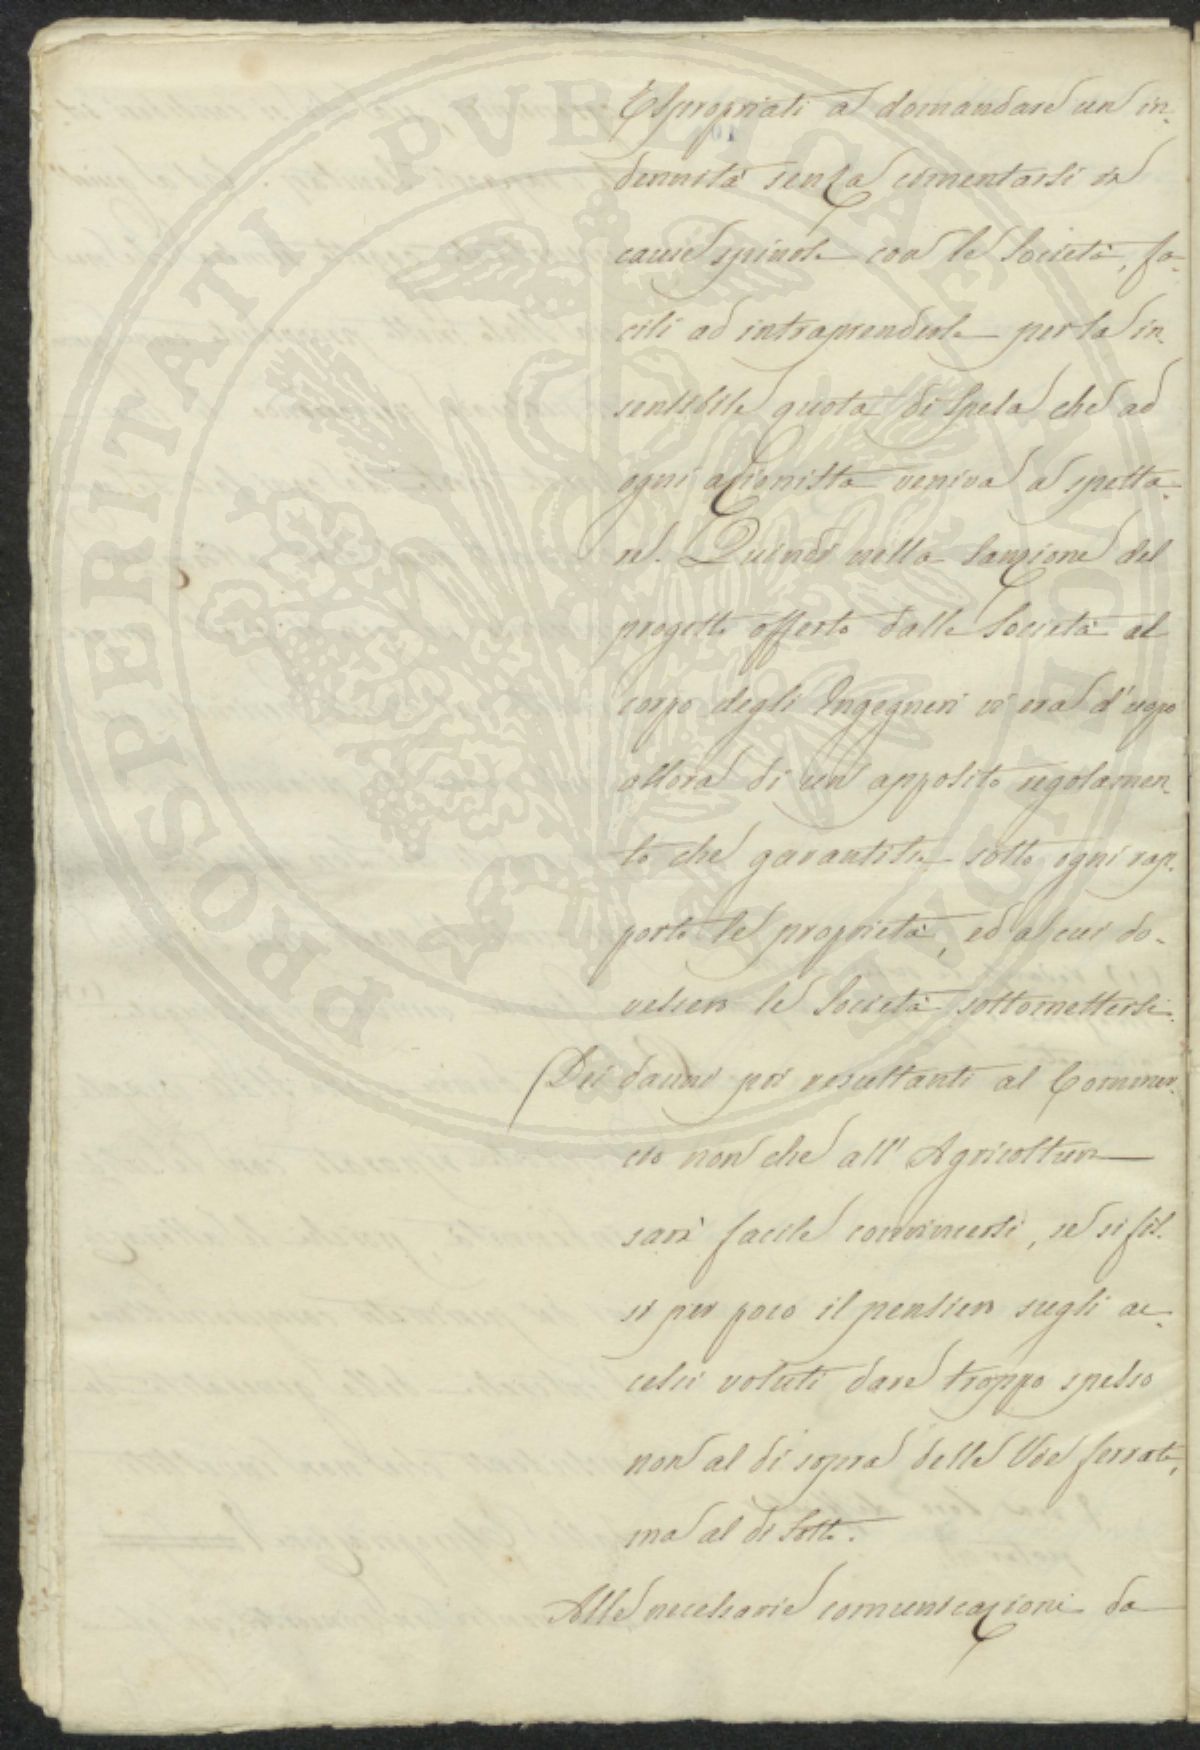 Espropriati a domandare un in-
dennità senza cimentarsi in
cause spinose con le Società, fa-
cili ad intraprenderle per la in-
sensibile quota di spesa che ad
ogni azionista veniva a spetta-
re. Quindi nella sanzione del
progetto offerto dalle Società al
corpo degli Ingegneri vi era d'uopo
allora di un apposito regolamen-
to che garantisse sotto ogni rap-
porto le proprietà, ed a cui do-
vessero le Società sottomettersi.
Dei danni poi resultanti al Commer-
cio non che all'Agricoltura
sarà facile convincersi, se si fis-
si per poco il pensiero sugli ac-
cessi voluti dare troppo spesso
non al di sopra delle Vie ferrate,
ma al di sotto.
Alle necessarie comunicazioni da
PROSPERITATI PVBLICAE